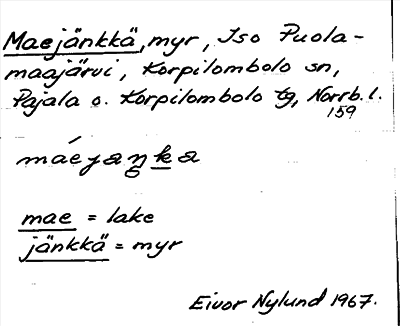 Maejänkkä, myr, Iso Puola-
maajärvi, Korpilombolo sn,
Pajala o. Korpilombolo tg, Norrb. l.
159
máejaŋka
mae = lake
jänkkä = myr
Eivor Nylund 1967.